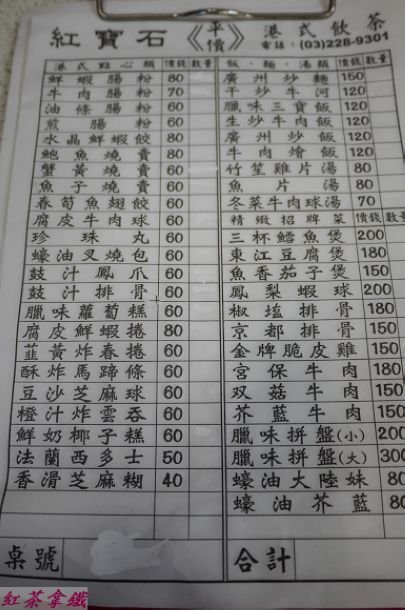 紅寶石 《平價》 港式飲茶
電話：(03)228-9301
港式點心類 價錢 數量
鮮蝦腸粉 80
牛肉腸粉 70
油條腸粉 60
煎腸粉 60
水晶鮮蝦餃 80
鮑魚燒賣 80
蟹黃燒賣 60
魚子燒賣 60
春荀魚翅餃 60
腐皮牛肉球 60
珍珠丸 60
蠔油叉燒包 60
鼓汁鳳爪 60
鼓汁排骨 60
臘味蘿蔔糕 60
腐皮鮮蝦捲 80
韮黃炸春捲 60
酥炸馬蹄條 60
豆沙芝麻球 60
橙汁炸雲吞 60
鮮奶椰子糕 60
法蘭西多士 50
香滑芝麻糊 40
桌號
飯．麵．湯類 價錢 數量
廣州炒麵 150
干炒牛河 120
臘味三寶飯 120
生炒牛肉飯 120
廣州炒飯 120
牛肉燴飯 120
竹笙雞片湯 80
魚片湯 80
冬菜牛肉球湯 70
精緻招牌菜 價錢 數量
三杯鱈魚煲 200
東江豆腐煲 180
魚香茄子煲 150
鳳梨蝦球 200
椒塩排骨 180
京都排骨 150
金牌脆皮雞 150
宮保牛肉 180
双菇牛肉 150
芥藍牛肉 150
臘味拼盤(小) 200
臘味拼盤(大) 300
蠔油大陸妹 80
蠔油芥藍 80
合計
紅茶拿鐵